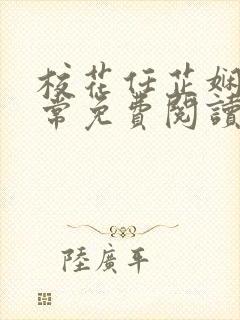 校花任芷娴
常免費閱讀
陸廣平